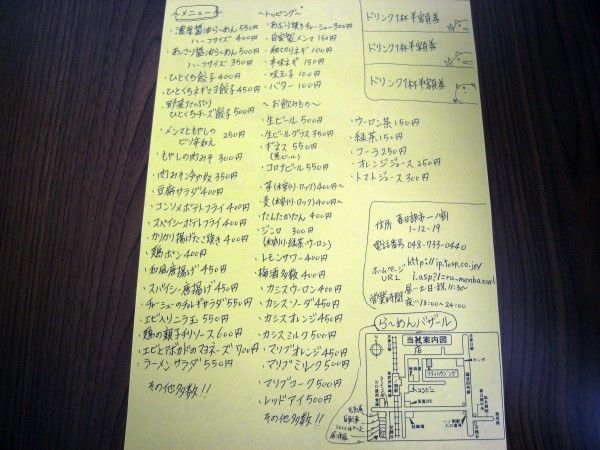 メニュー
・濃厚醤油らーめん 550円
ハーフサイズ 400円
・あっさり醤油らーめん 500円
ハーフサイズ 350円
・ひとくち餃子 400円
・ひとくちネギマヨ餃子 450円
・野菜たっぷり
ひとくちチーズ餃子 500円
・メンマともやしの
ピリ辛和え 250円
・もやしの肉みそ 300円
・肉みそ冷奴 350円
・豆腐サラダ 400円
・コンソメポテトフライ 400円
・スパイシーポテトフライ 400円
・カリカリ揚げたこ焼き 400円
・鶏ポン 400円
・和風唐揚げ 450円
・スパイシー唐揚げ 450円
・チャーシューのチョレギサラダ 550円
・エビ入り二ラ玉 550円
・鶏の親子チリソース 600円
・エビとアボカドのマヨネーズ 700円
・ラーメンサラダ 550円
その他多数!!
〜トッピング〜
・あぶり焼きチャーシュー 300円
・自家製メンマ 150円
・細切りネギ 100円
・辛味ネギ 150円
・味玉子 100円
・バター 100円
〜お飲みもの〜
・生ビール 500円
・生ビールグラス 350円
・ギネス 550円
(黒ビール)
・コロナビール 550円
・芋(水割り・ロック) 400円〜
・麦(水割り・ロック) 400円〜
・たんたかたん 400円
・ジンロ 300円
(水割り・緑茶・ウーロン)
・レモンサワー 400円
・梅酒多数 400円
・カシスウーロン 400円
・カシスソーダ 450円
・カシスオレンジ 450円
・カシスミルク 500円
・マリブオレンジ 450円
・マリブミルク 500円
・マリブコーク 500円
・レッドアイ 500円
その他多数!!
・ウーロン茶 150円
・緑茶 150円
・コーラ 250円
・オレンジジュース 250円
・トマトジュース 300円
ドリンク1杯半額券
ドリンク1杯半額券
ドリンク1杯半額券
住所 春日部市一ノ割
1-12-19
電話番号 048-733-0440
ホームページ http://ip.tosp.co.jp/
URL i.asp?I=ra_menbazarl
営業時間 昼・土日・祝 11:30〜
夜・18:00〜24:00
ら〜めんバザール
当社案内図